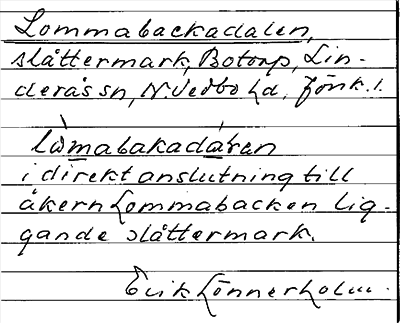 Lommabackadalen,
slåttermark, Botorp, Lin-
derås sn, N. Vedbo hd. Jönk. l.
lòmabakadáren
i direkt anslutning till
åkern Lommabacken lig-
gande slåttermark.
Erik Lönnerholm.